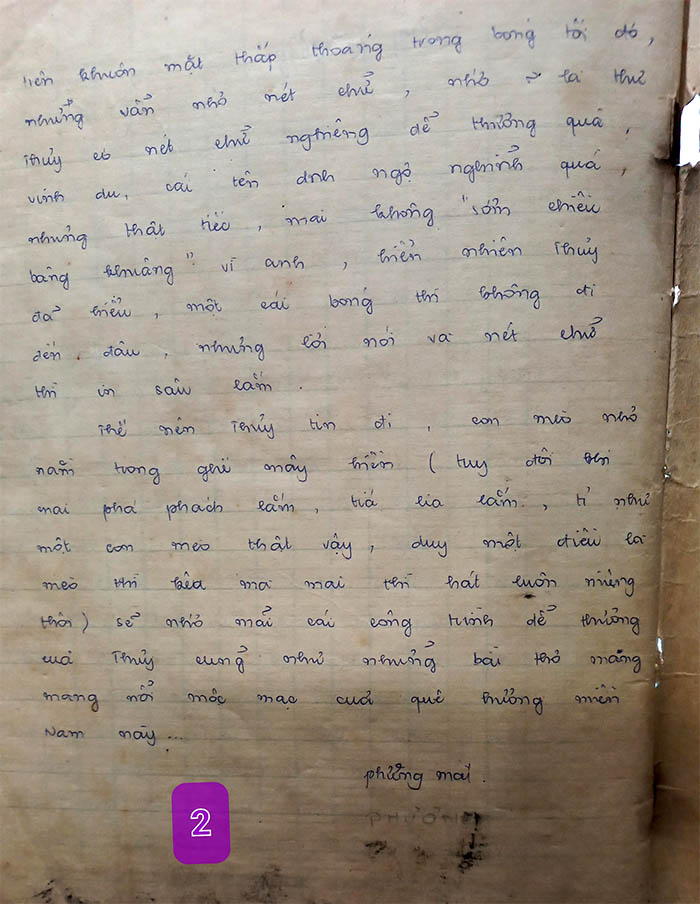 trên khuôn mặt thấp thoáng trong bóng tối đó,
nhưng vẫn nhớ nét chữ, nhớ là thư
Thủy có nét chữ nghiêng dễ thương quá,
vinh du, cái tên dnh ngộ nghĩnh quá,
nhưng thật tiếc, mai không "sớm chiều
bâng khuâng" vì anh, hiển nhiên Thủy
đã hiểu, một cái bóng thì không đi
đến đâu, nhưng lời nói và nét chữ
thì in sâu lắm.
Thế nên Thủy tin đi, con mèo nhỏ
nằm trong ghế mây hiền (tuy đôi khi
mai phá phách lắm, tía lia lắm, tỉ như
một con mèo thật vậy, duy một điều là
mèo thì kêu mà mai thì hát luôn miệng
thôi) sẽ nhớ mãi cái công trình dễ thương
của Thủy cũng như những bài thơ mang
mang nỗi mộc mạc của quê hương miền
Nam này...
phương mai.
2